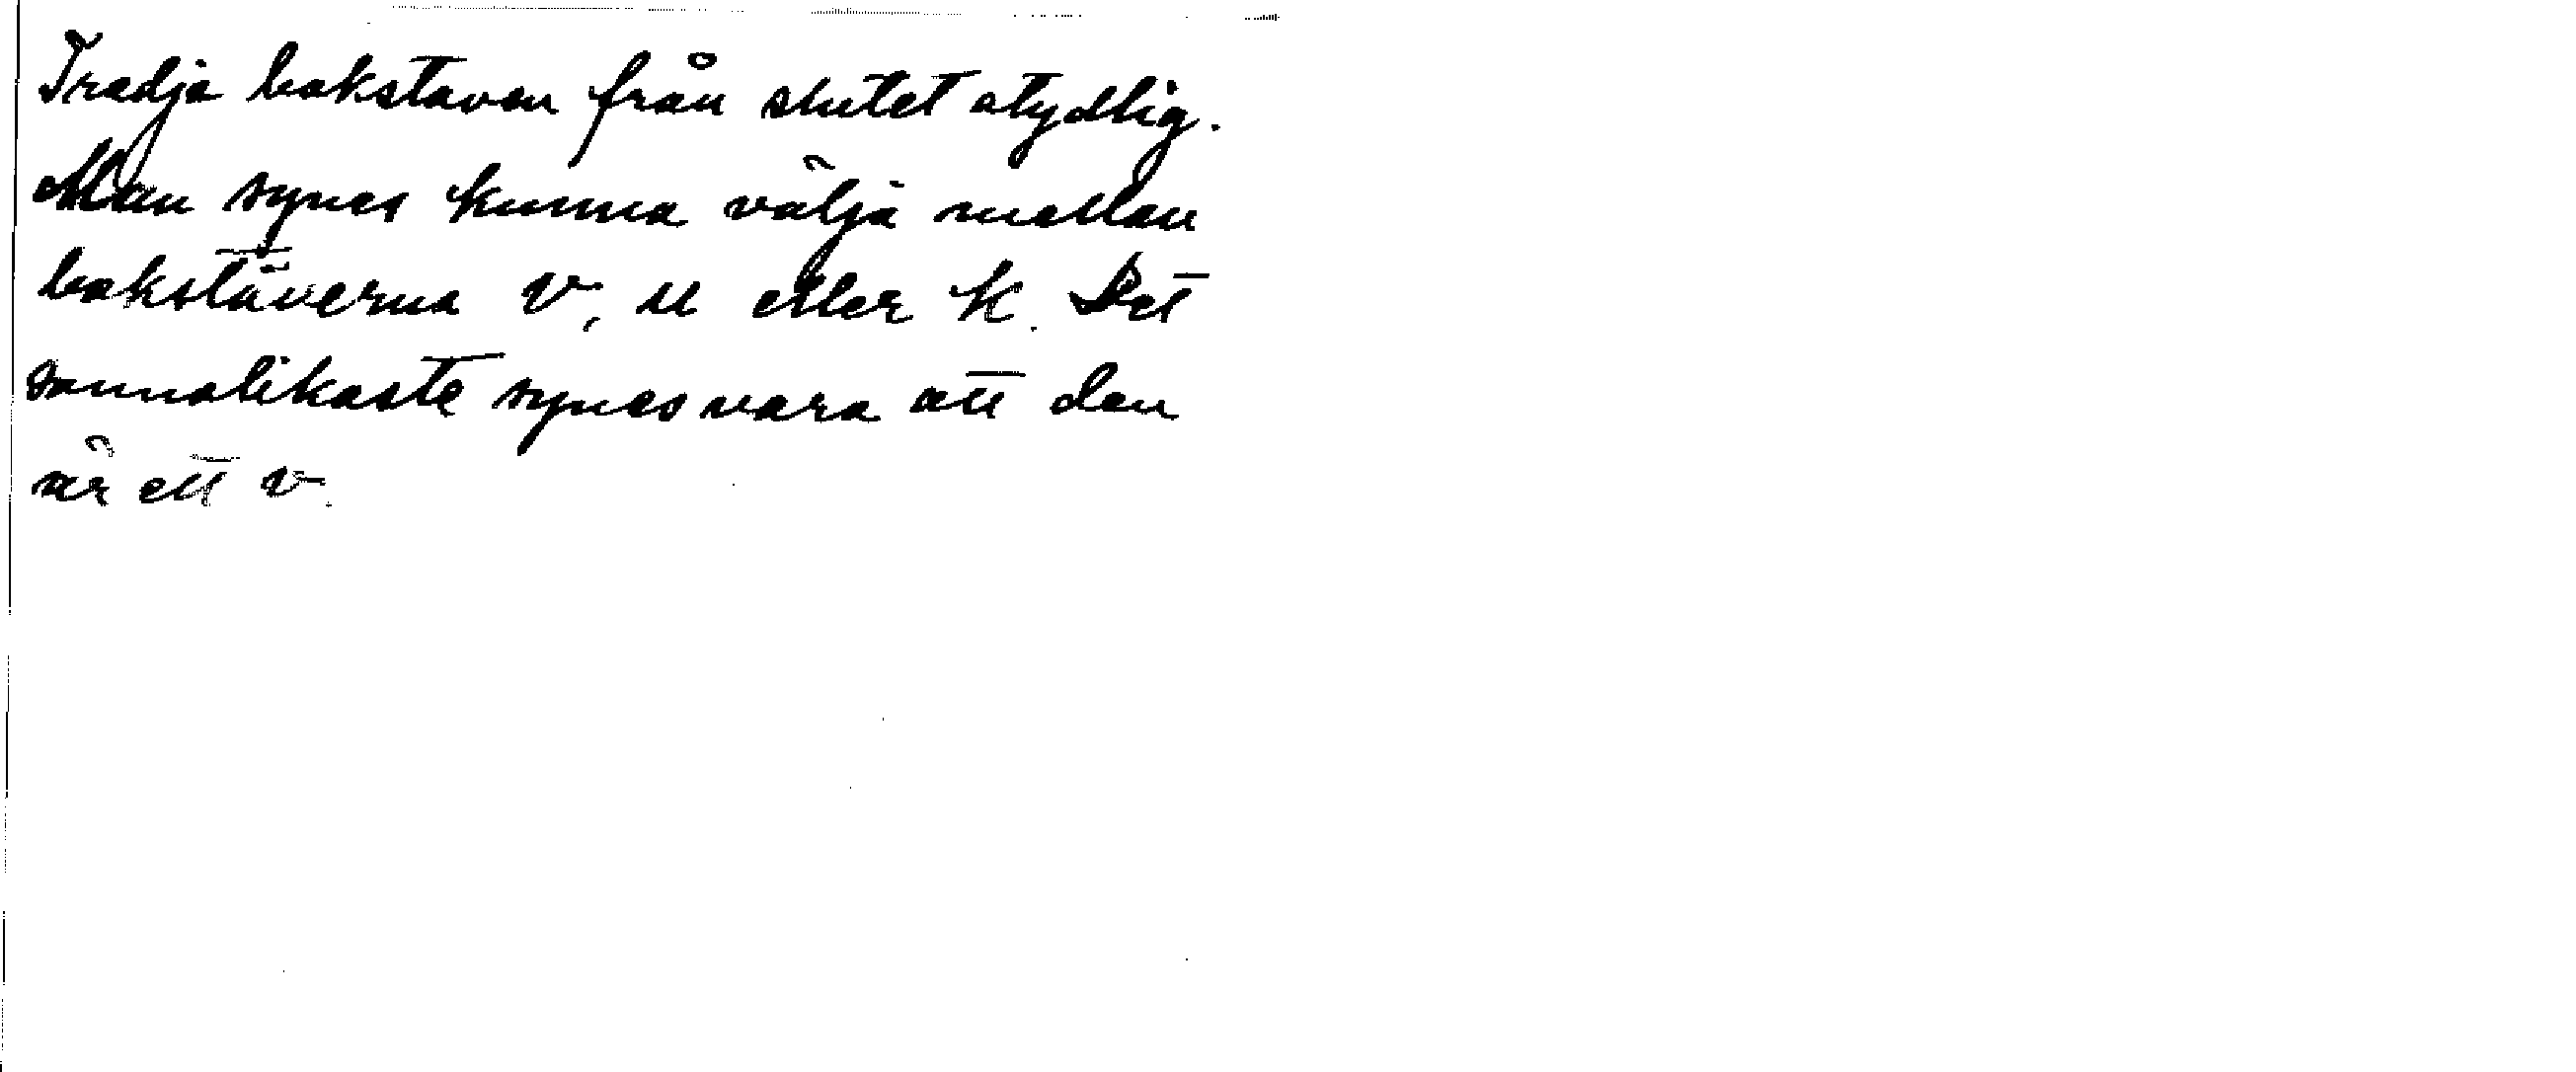 Tredje bokstaven från slutet otydlig.
Man synes kunna välja mellan
bokstäverna v, u eller k. Det
sannolikaste synes vara att den
är ett v.